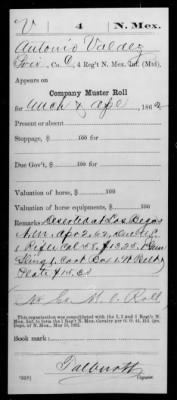 V 4 N. Mex.
Antonio Valdez
Co. C, 4 Reg't N. Mex. Inf. (Mtd),
Appears on
Company Muster Roll
for Mch & Apl, 1862
Present or absent
Stoppage, $ 100 for
Due Gov't, $ 100 for
Valuation of horse, $ 100
Valuation of horse equipments, $ 100
Remarks Deserted at Las Vegas
N.M. Apr 2, 62,
1 Rifle Cal 58, $13.25, 1 Gun
Sling 1 Cart Box & Belt
Plate
M. O. Roll
This organization consolidated with the 1, 2 and 5 Reg't N.
Mex. Inf. to form the 1 Reg't N. Mex. Cavalry per G. O. 41, Hd. Qrs.
Dept. of N. Mex., May 31, 1862.
Book mark
Talbnott
Copyist.